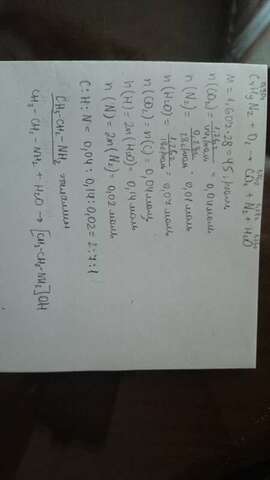 CxHyNz + O2 → CO2 + N2 + H2O
M = 1,607·28 = 45 г/моль
n(CO2) = = 0,04 моль
n(N2) = = 0,01 моль
n(H2O) = = 0,07 моль
n(CO2) = n(C) = 0,04 моль
n(H) = 2n(H2O) = 0,14 моль
n(N) = 2n(N2) = 0,02 моль
C:H:N = 0,04:0,14:0,02 = 2:7:1
CH3-CH2-NH2 этиламин
CH3-CH2-NH2 + H2O → [CH3-CH2-NH3]OH